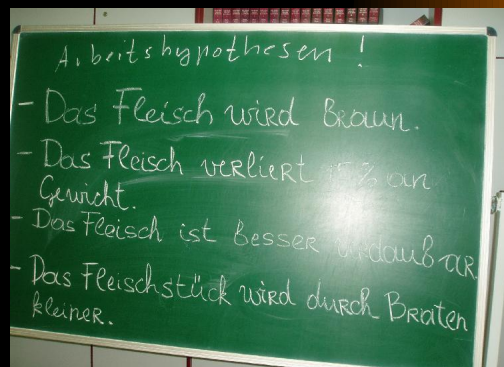 Arbeitshypothesen !
- Das Fleisch wird Braun.
- Das Fleisch verliert 15% an
Gewicht.
- Das Fleisch ist besser verdaubar.
- Das Fleischstück wird durch Braten
kleiner.